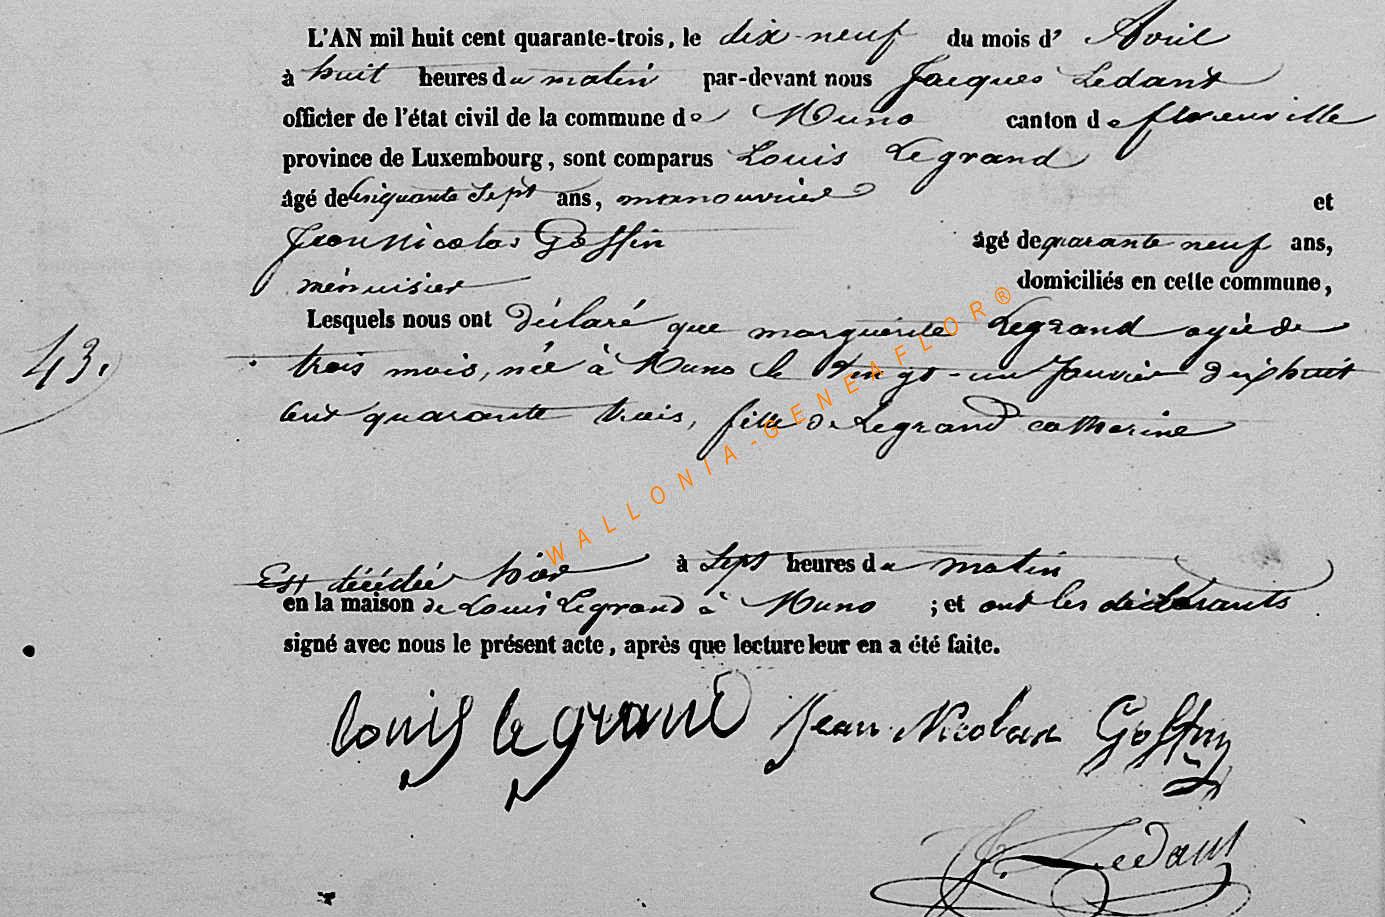 L'AN mil huit cent quarante-trois, le dix-neuf du mois d' Avril
à huit heures du matin par-devant nous Jacques Ledant
officier de l'état civil de la commune de Muno canton de florenville
province de Luxembourg, sont comparus Louis Legrand
âgé de cinquante sept ans, manouvrier et
Jean Nicolas Goffin âgé de quarante neuf ans,
ménuisier domiciliés en cette commune,
Lesquels nous ont déclaré que marguérite Legrand agée de
43. trois mois, née à Muno le vingt-un Janvier dixhuit
cent quarante trois, fille de Legrand catherine
WALLONIA-GENEAFLOR®
Est décédée hier à sept heures du matin
en la maison de Louis Legrand à Muno ; et ont les déclarants
signé avec nous le présent acte, après que lecture leur en a été faite.
louis le grand Jean Nicolas Goffin
J. Ledant